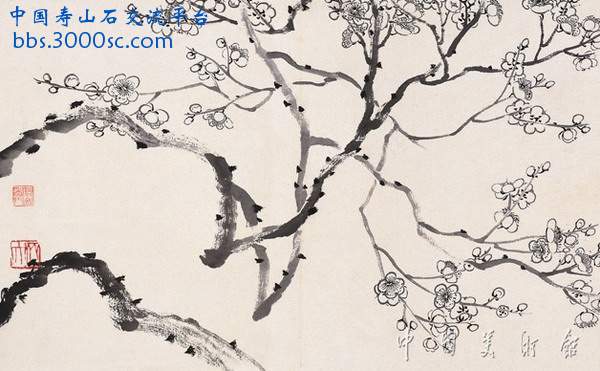 中国寿山石交流平台
bbs.3000sc.com
中国美术馆